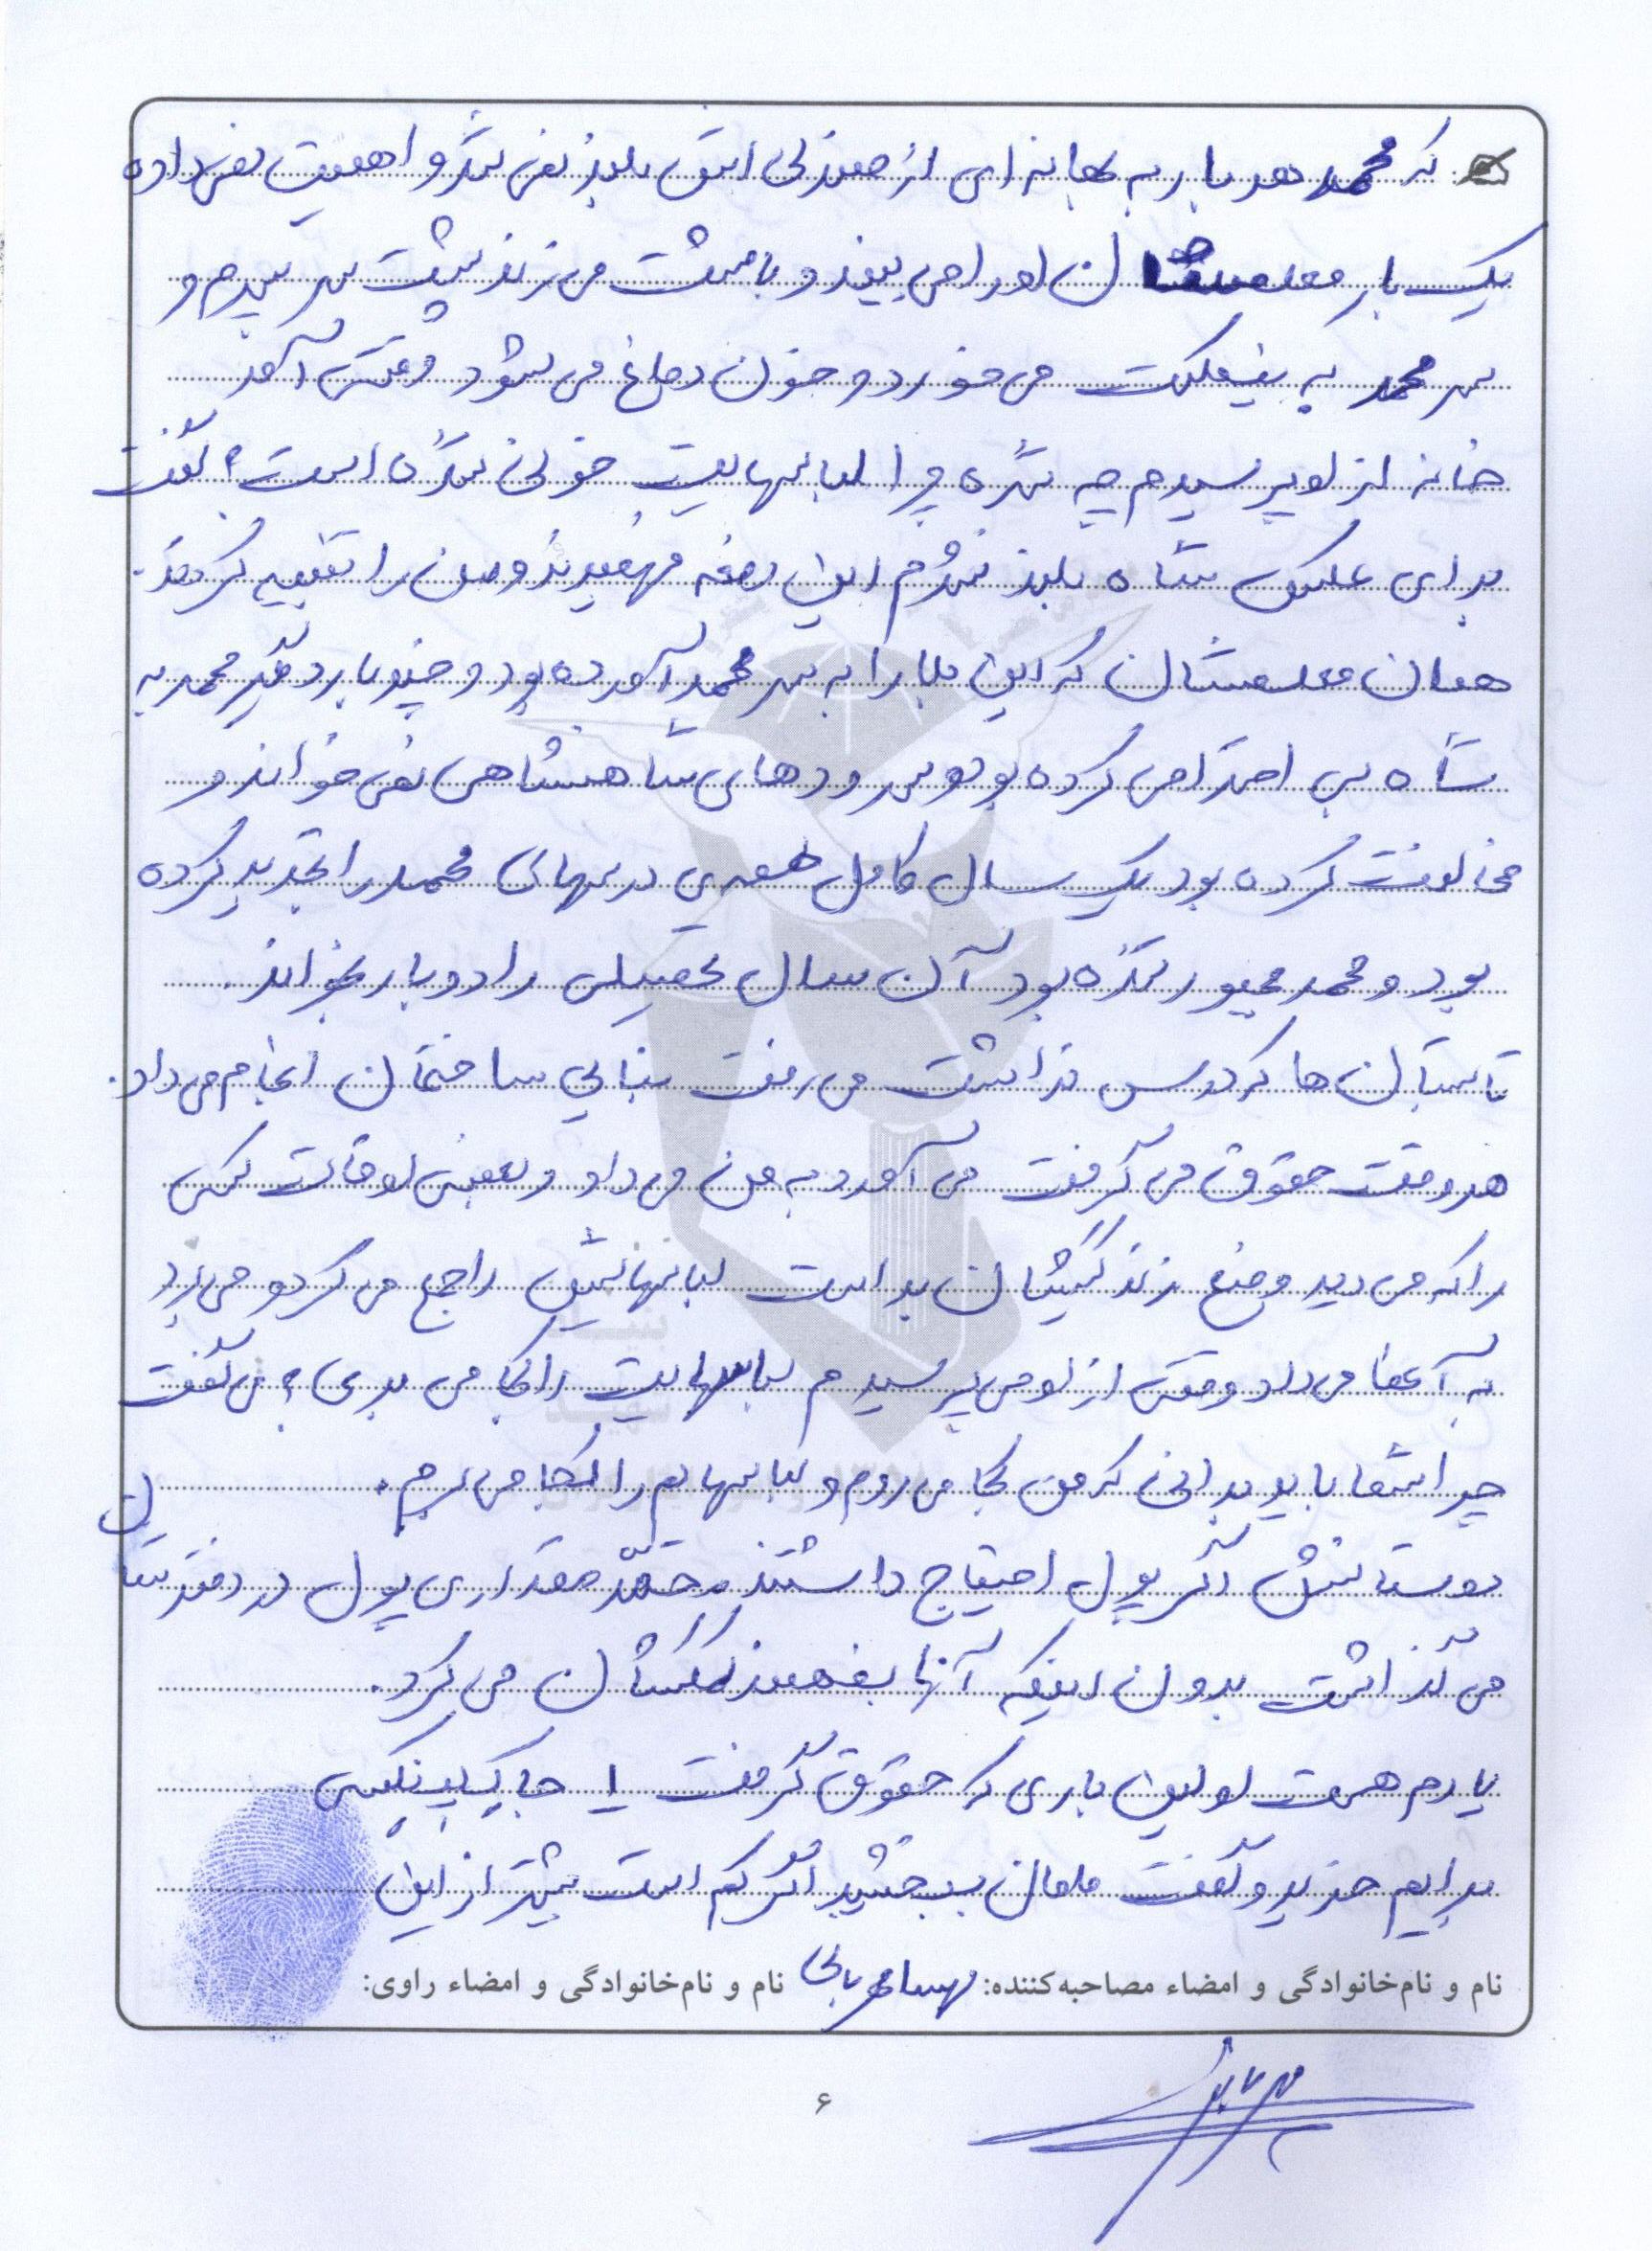 که محمد هر بار به بهانه ای از صندلی اش بلند نمی شد و اهمیت نمی داده
یک بار معلمشان او را می بیند و با مشت می زند پشت سر پسرم و
سر محمد به نیمکت می خورد و خون دماغ می شود وقتی آمد
خانه از او پرسیدم چه شده چرا لباسهایت خونی شده است؟ گفت
برای عکس شاه بلند نشدم این دفعه فهمیدند و من را تنبیه کردند.
همان معلمشان که این بلا را به سر محمد آورده بود و چند بار دیگر محمد به
شاه بی احترامی کرده بود و سرودهای شاهنشاهی نمی خواند و
مخالفت کرده بود یک سال کامل همه ی درسهای محمد را تجدید کرده
بود و محمد مجبور شده بود آن سال تحصیلی را دوباره بخواند.
تابستان ها که درس نداشت می رفت بنایی ساختمان انجام می داد.
هر وقت حقوق می گرفت می آورد به من می داد و بعضی اوقات کسی
را که می دید وضع زندگیشان بد است لباسهایش را جمع می کرد و می برد
به آنها می داد وقتی از او می پرسیدم لباسهایت را کجا می بری؟ می گفت
چرا شما باید بدانی که من کجا می روم و لباسهایم را کجا می برم.
دوستانش اگر پول احتیاج داشتند مقداری پول در دفترشان
می گذاشت بدون اینکه آنها بفهمند کمکشان می کرد.
یادم هست اولین باری که حقوق گرفت ۱ جا
برایم خرید و گفت مامان ببخشید اگر کم است بیشتر از این
نام و نام‌خانوادگی و امضاء مصاحبه‌کننده: مهسا نام و نام‌خانوادگی و امضاء راوی:
۶